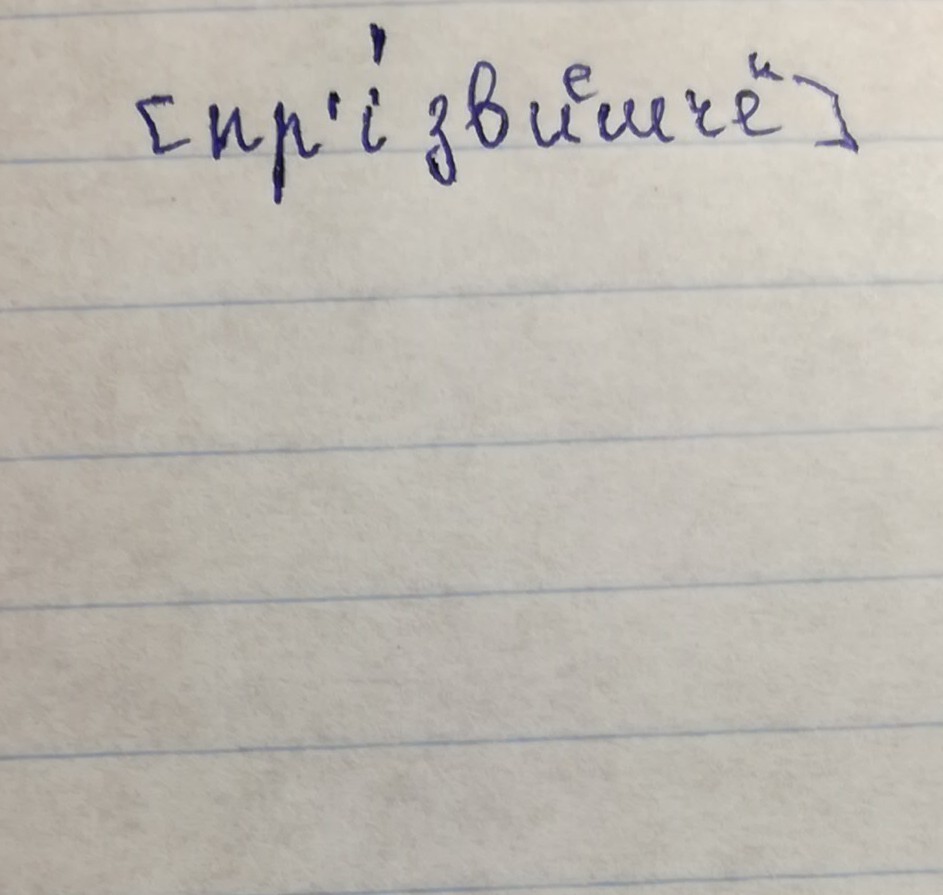 [пр'і́звиᵉшчеᵘ]